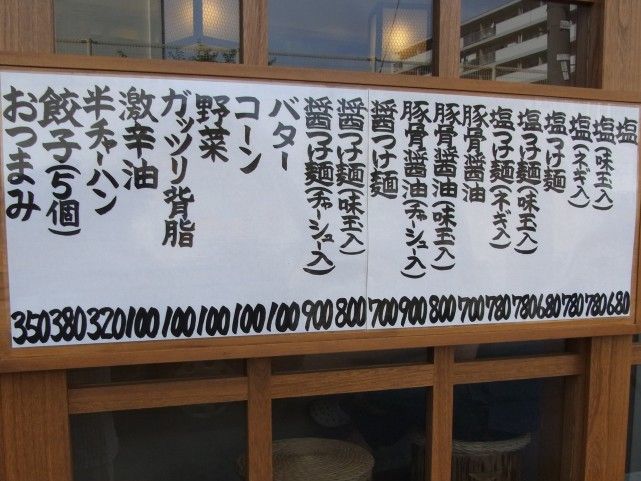 塩 680
塩(味玉入) 780
塩(ネギ入) 780
塩つけ麺 680
塩つけ麺(味玉入) 780
塩つけ麺(ネギ入) 780
豚骨醤油 700
豚骨醤油(味玉入) 800
豚骨醤油(チャーシュー入) 900
醤つけ麺 700
醤つけ麺(味玉入) 800
醤つけ麺(チャーシュー入) 900
バター 100
コーン 100
野菜 100
ガッツリ背脂 100
激辛油 100
半チャーハン 320
餃子(5個) 380
おつまみ 350